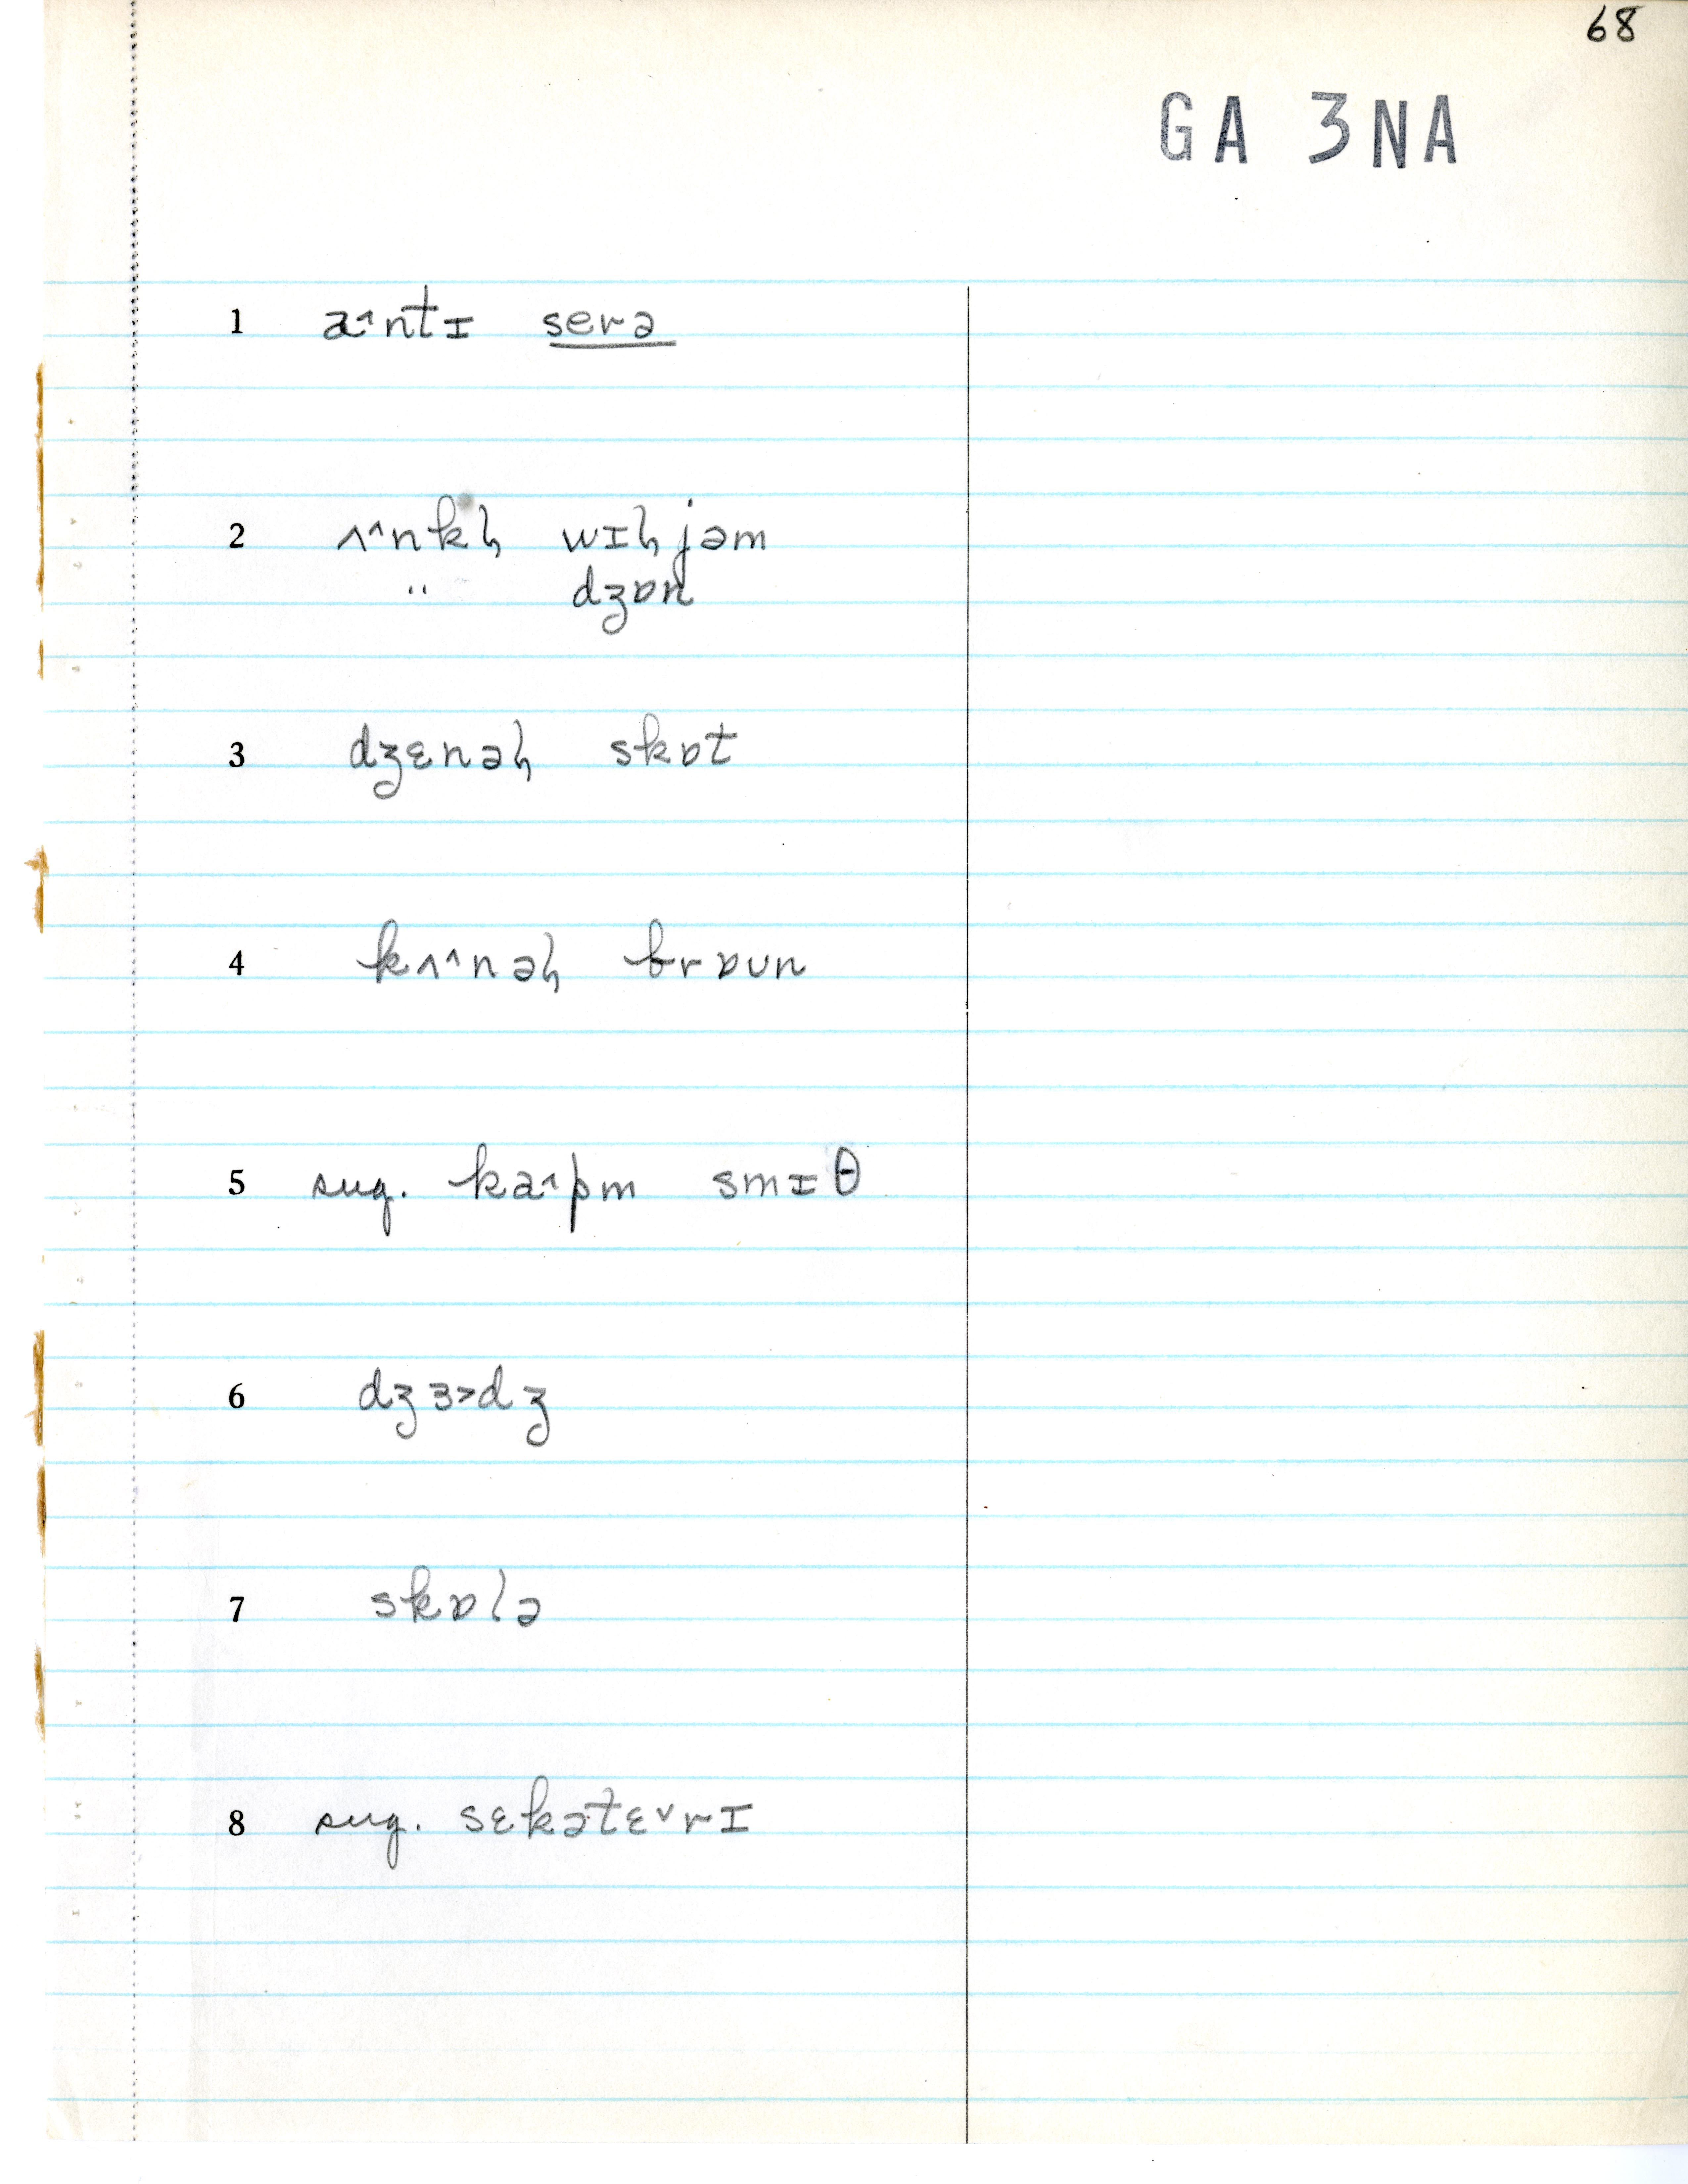 68
GA 3NA
1 a˄ntɪ serə
2 ʌ˄nkɫ wɪɫjəm
" dʒɒn
3 dʒɛnəɫ skɒt
4 kʌ˄nəɫ brɒʊn
5 sug. ka˄pm smɪθ
6 dʒɜ˃dʒ
7 skɒlə
8 sug. sɛkətɛ˅rɪ